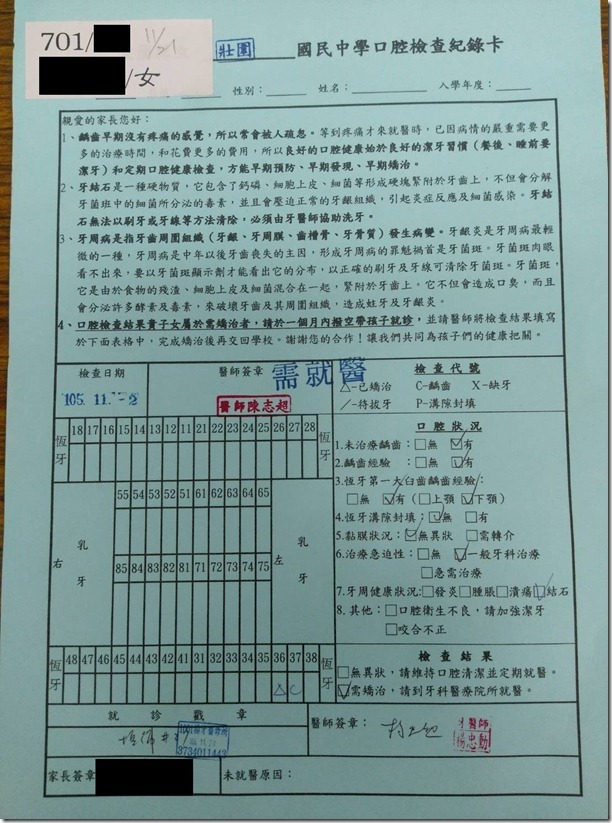 701/
11/21
/女
壯圍
國民中學口腔檢查紀錄卡
性別： 姓名： 入學年度：
親愛的家長您好：
1、齲齒早期沒有疼痛的感覺，所以常會被人疏忽。等到疼痛才來就醫時，已因病情的嚴重需要更
多的治療時間，和花費更多的費用，所以良好的口腔健康始於良好的潔牙習慣（餐後、睡前要
潔牙）和定期口腔健康檢查，方能早期預防、早期發現、早期矯治。
2、牙結石是一種硬物質，它包含了鈣磷、細胞上皮、細菌等形成硬塊緊附於牙齒上，不但會分解
牙菌斑中的細菌所分泌的毒素，並且會壓迫正常的牙齦組織，引起炎症反應及細菌感染。牙結
石無法以刷牙或牙線等方法清除，必須由牙醫師協助洗牙。
3、牙周病是指牙齒周圍組織（牙齦、牙周膜、齒槽骨、牙骨質）發生病變。牙齦炎是牙周病最輕
微的一種，牙周病是中年以後牙齒喪失的主因，形成牙周病的罪魁禍首是牙菌斑。牙菌斑肉眼
看不出來，要以牙菌斑顯示劑才能看出它的分布，以正確的刷牙及牙線可清除牙菌斑。牙菌斑，
它是由於食物的殘渣、細胞上皮及細菌混合在一起，緊附於牙齒上。它不但會造成口臭，而且
會分泌許多酵素及毒素，來破壞牙齒及其周圍組織，造成蛀牙及牙齦炎。
4、口腔檢查結果貴子女屬於需矯治者，請於一個月內撥空帶孩子就診，並請醫師將檢查結果填寫
於下面表格中，完成矯治後再交回學校。謝謝您的合作！讓我們共同為孩子們的健康把關。
檢查日期 醫師簽章 需就醫 檢查代號
△-已矯治 C-齲齒 X-缺牙
/-待拔牙 P-溝隙封填
105. 11. -2
醫師陳志超
恆牙 18 17 16 15 14 13 12 11 21 22 23 24 25 26 27 28 恆牙
55 54 53 52 51 61 62 63 64 65
右 乳牙 左 乳牙
85 84 83 82 81 71 72 73 74 75
恆牙 48 47 46 45 44 43 42 41 31 32 33 34 35 36 37 38 恆牙
△ C
口腔狀況
1.未治療齲齒：□無 ☑有
2.齲齒經驗 ：□無 ☑有
3.恆牙第一大臼齒齲齒經驗：
□無 ☑有（□上顎 ☑下顎）
4.恆牙溝隙封填：☑無 □有
5.黏膜狀況：☑無異狀 □需轉介
6.治療急迫性：□無 ☑一般牙科治療
□急需治療
7.牙周健康狀況:□發炎□腫脹□潰瘍☑結石
8.其他：□口腔衛生不良，請加強潔牙
□咬合不正
檢查結果
□無異狀，請維持口腔清潔並定期就醫。
☑需矯治，請到牙科醫療院所就醫。
就診戳章
3734011443
醫師簽章：
牙醫師
楊忠勳
家長簽章
未就醫原因：